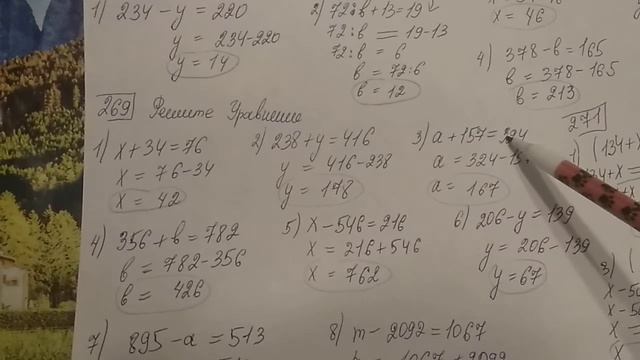 1) 234 - y = 220
y = 234-220
y = 14
2) 72:в+13=19
72:в = 19-13
72:в = 6
в = 72:6
в = 12
x = 46
4) 378-в=165
в = 378-165
в = 213
269 Решите Уравнение
1) x+34=76
x = 76-34
x = 42
2) 238+y=416
y = 416-238
y = 178
3) a+157=324
a = 324-15
a = 167
4) 356+в=782
в = 782-356
в = 426
5) x-546=216
x = 216+546
x = 762
6) 206-y=139
y = 206-139
y = 67
7) 895-a=513
8) m-2092=1067
271
1) (134+x
3) (
x-50
x =